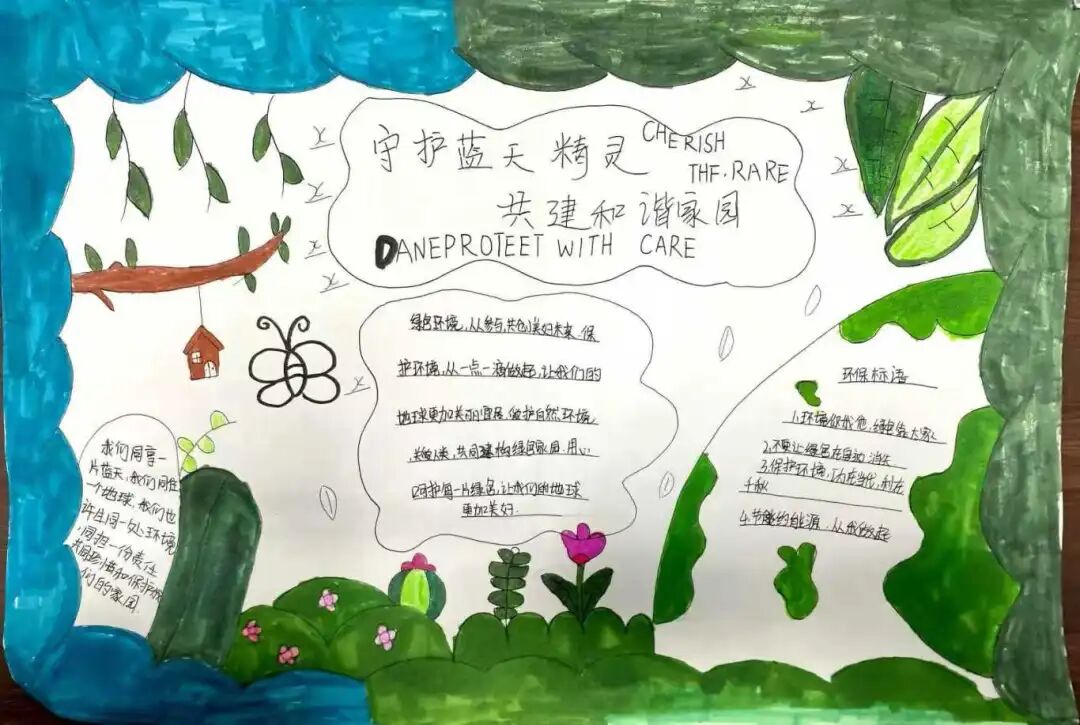 守护蓝天精灵
CHERISH
THE.RARE
共建和谐家园
DANEPROTEET WITH CARE
绿色环境,从参与,共创美好未来.保
护环境,从一点一滴做起,让我们的
地球更加美丽宜居.爱护自然,环境,
关爱人类,共同建构绿色家园.用心
呵护每一片绿色,让我们的地球
更加美好.
我们同享一
片蓝天,我们同住
一个地球,我们也
许生同一处环境
,同担一份责任
共同珍惜和保护我
们的家园
环保标语
1.环境你我他,绿色靠大家
2.不要让绿色在自动 消失
3.保护环境,功在当代,利在
千秋
4.节约能源.从我做起